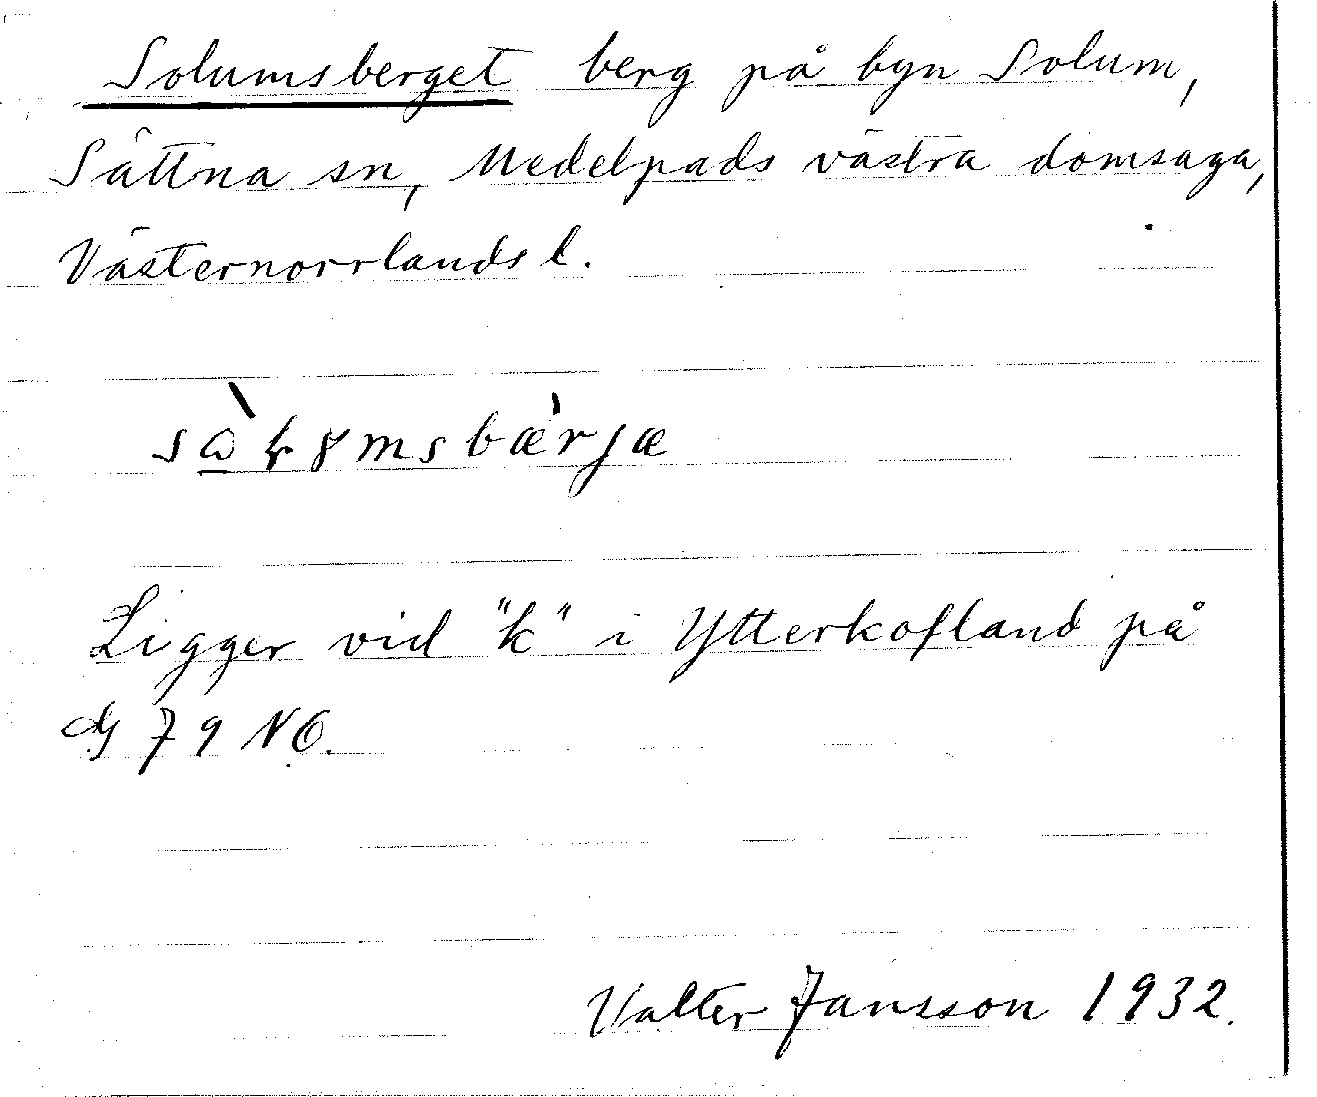 Solumsberget berg på byn Solum,
Sättna sn, Medelpads västra domsaga,
Västernorrlands l.
Ligger vid "k" i Ytterkofland på
G 79 NO.
Valter Jansson 1932.